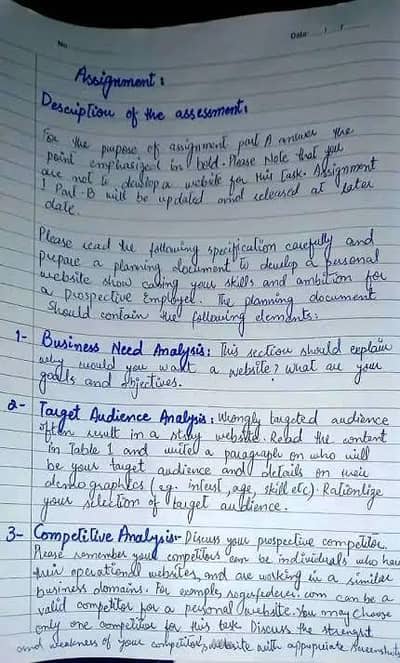 No
Date: / /
Assignment:
Description of the assessment:
For the purpose of assignment part A answer the
point emphasized in bold. Please Note that you
are not to develop a website for this task. Assignment
1 Part-B will be updated and released at later
date.
Please read the following specification carefully and
prepare a planning document to develop a personal
website show casing your skills and ambition for
a prospective Employer. The planning document
Should contain the following elements:
1- Business Need Analysis: This section should explain
why would you want a website? What are your
goals and objectives.
2- Target Audience Analysis: Wrongly targeted audience
often result in a website. Read the content
in Table 1 and write a paragraph on who will
be your target audience and details on their
demographics (eg. interest, age, skill etc). Rationlize
your selection of target audience.
3- Competitive Analysis:- Discuss your prospective competitor.
Please remember your competitors can be individuals who have
their operational websites, and are working in a similar
business domains. For example, rogerfederer.com can be a
valid competitor for a personal website. You may choose
only one competitor for this task. Discuss the strenght
and weakness of your competitor website with appropriate screenshots